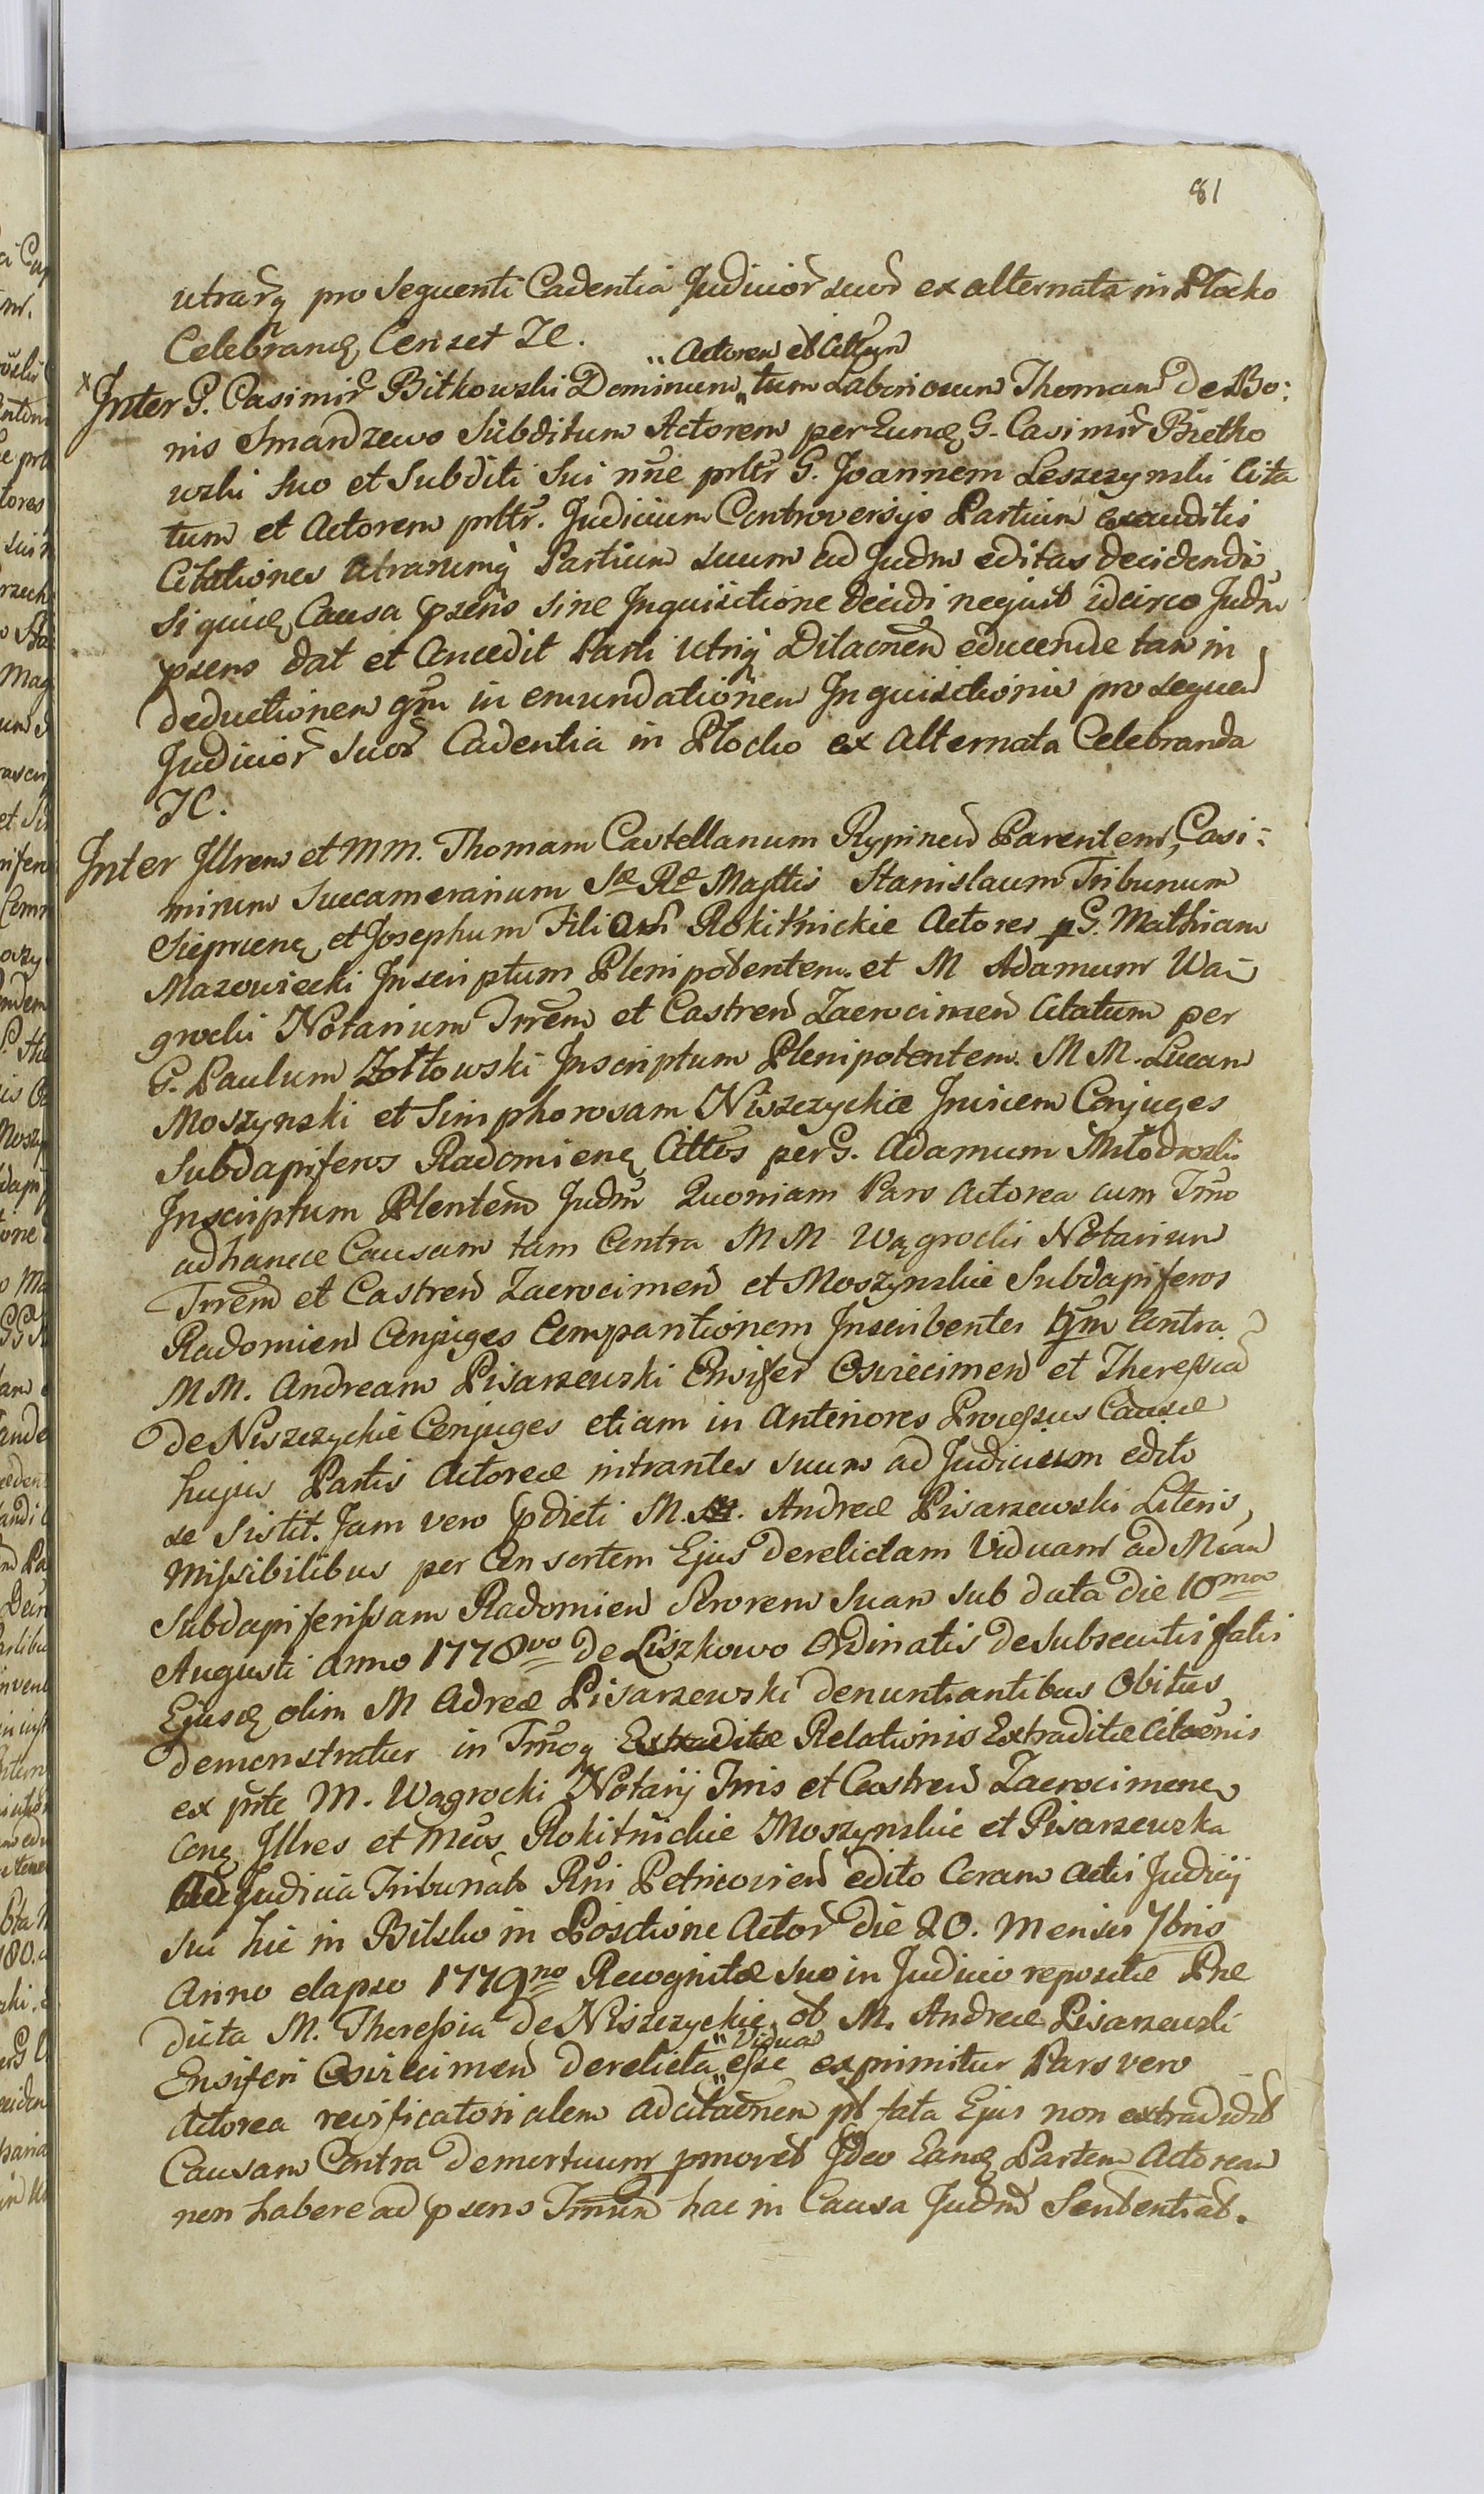 81
utrarq pro Sequenti Cadentia Judicior suor ex alternata in Płocko
Celebranq Censet IC.
„ Actorem et Cittum
x Inter G. Casimir Bitkowski Dominum „ tum Laboriosum Thomam de Bo:
nis Smardzewo Subditum Actorem per Eunq G. Casimir Bietko
wski suo et Subditi Sui nne prltr G. Joannem Leszczynski Cita
tum et Actorem prltr. Judicium Controversys Partium exauditis
Citationes Utrarumq Partium suum ad Judm editas decidendo
Siquiq Causa psens sine Inquisitione decidi nequit idcirco Judm
psens dat et Concedit Parti Utriq Dilaonem educende tam in
deductionem qm in emundationem Inquisitionis pro sequen
Judicior suor Cadentia in Płocko ex Alternata Celebranda
IC.
Inter Illrem et MM. Thomam Castellanum Rypinen Parentem, Casi:
mirum Succamerarium Sæ Ræ Mattis Stanislaum Tribunum
Sieprcenq et Josephum Filios Rokitnickie Actores p G. Mathiam
Mazowiecki Inscriptum Plenipotentem. et M Adamum Wa
grocki Notarium Trrem et Castren Zacrocimen Citatum per
G. Paulum Zołtowski Inscriptum Plenipotentem. MM. Lucam
Moszynski et Simphorosam Niszczyckie Invicem Conjuges
Subdapiferos Radomienq Cittos per G. Adamum Młodwski
Inscriptum Plentem Judm Quoniam Pars Actorea cum Tmo
ad hancce Causam tam Contra MM Wągrocki Notarium
Trrem et Castren Zacrocimen et Moszynskie Subdapiferos
Radomien Conjuges Comparitionem Inscribentes qm Contra
MM. Andream Pisarzewski Ensifer Osviecimen et Theressia
de Niszczyckie Conjuges etiam in Anteriores Processus Causæ
hujus Partis Actoreæ intrantes suum ad Judicium edito
se Sistit. Jam vero pdicti M. Andreæ Pisarzewski Literis
Missibilibus per Consortem Ejus derelictam Viduam ad Mcam
Subdapiferissam Radomien Sororem Suam sub data die 10ma
Augusti Anno 1778vo de Liszkowo Ordinatis de subsecutis fatis
Ejusq olim M Adreæ Pisarzewski denuntiantibus Obitus
demonstratur in Tmoq Extraditæ Relationis Extraditæ Citaonis
ex prte M. Wągrocki Notarij Trris et Castren Zacrocimenq
Conq Illres et Mcos Rokitnickie Moszynskie et Pisarzewska
Ad Judicia Tribunats Rni Petricovien edito Coram Actis Judicij
sui hic in Bilsko in Posctione Actor die 20. Mensis 7bris
Anno elapso 1779no Recognitæ suo in Judicio repositæ Præ
dicta M. Theressia de Niszczyckie ob M. Andreæ Pisarzewski
„ Vidua
Ensiferi Osviecimen derelicta „ esse exprimitur Pars vero
Actorea reisficatorialem ad citaonem pt fata Ejus non extradidit
Causam Contra demortuum pmovet Ideo Eanq Partem Actoream
non habere ad psens Tmum hac in Causa Judm Sententiat.